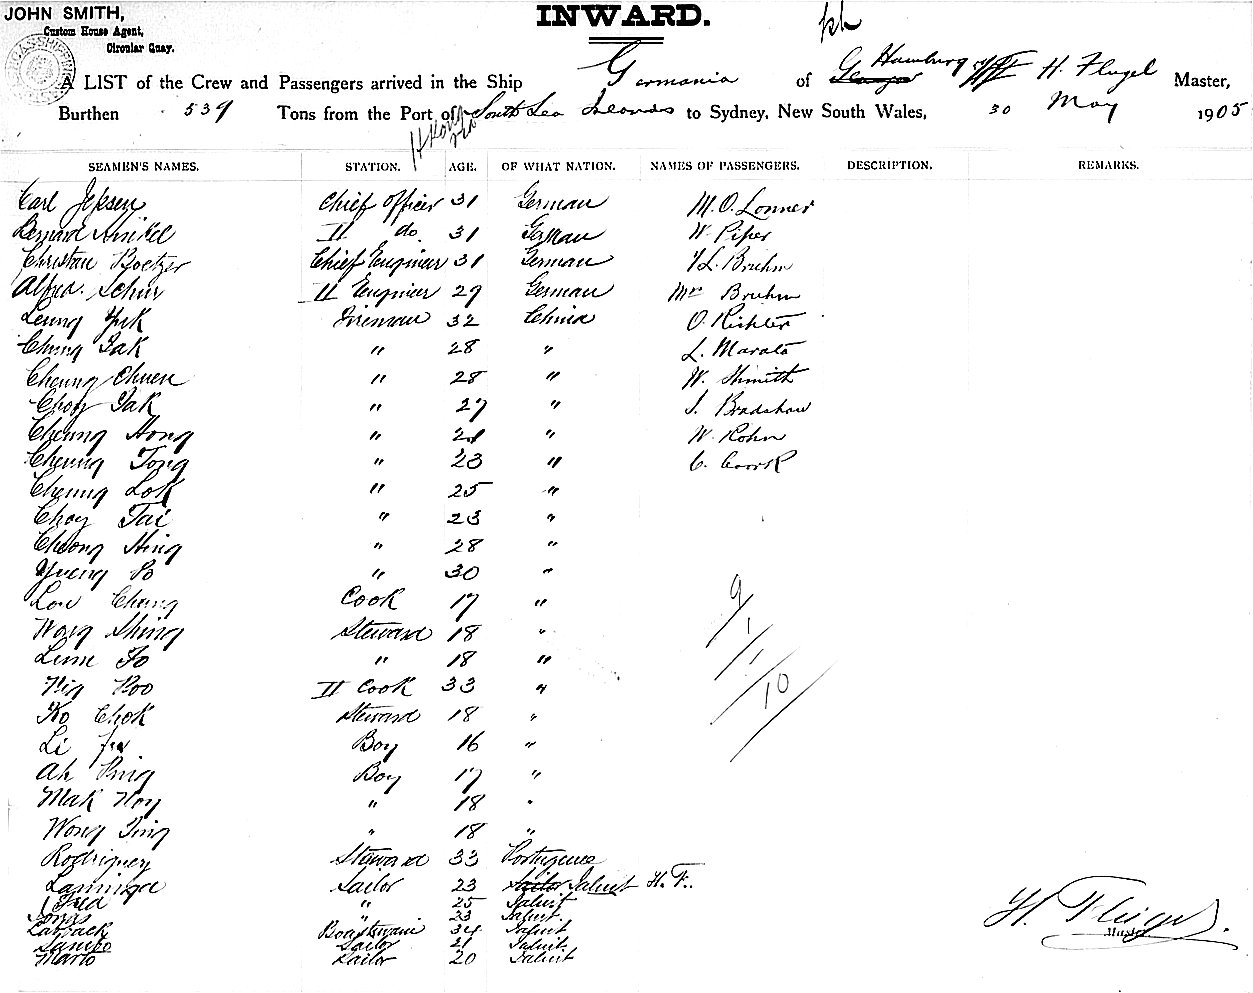 JOHN SMITH,
Custom House Agent,
Circular Quay.
INWARD.
A LIST of the Crew and Passengers arrived in the Ship Germania of Hamburg H. Flugel Master,
Burthen 539 Tons from the Port of South Sea Islands to Sydney, New South Wales, 30 May 1905
H Kong via
SEAMEN'S NAMES. STATION. AGE. OF WHAT NATION. NAMES OF PASSENGERS. DESCRIPTION. REMARKS.
Carl Jepsen Chief Officer 31 German M. O. Lonner
Bernard Hinkel II do. 31 German W. Piper
Christian Boetzer Chief Engineer 31 German L. Bruhm
Alfred. Schur II Engineer 29 German Mrs Bruhm
Leung Yuk Fireman 32 China O. Richter
Chung Tak " 28 " L. Marato
Cheung Chuen " 28 " W. Shmith
Choy Tak " 27 " S. Bradshaw
Cheung Hong " " W. Kohn
Cheung Tong " 23 " C. Coork
Cheung Lok " 25 "
Choy Tai " 23 "
Cheong Hing " 28 "
Yueng So " 30 "
Low Chang Cook 17 "
Wong Shing Steward 18 "
Lum Fo " 18 "
Koo II Cook 33 "
Ko Chok Steward 18 "
Li Boy 16 "
Ah Ping Boy 17 "
Mak Hoy " 18 "
Wong Ting " 18 "
Rodriguez Steward 33 Portuguese
Sailor 23 Sailor Jaluit H. F.
Fred " 25 Jaluit
Jonas " 23 Jaluit.
Labback Boatswain 34 Jaluit
Sambo Sailor 21 Jaluit.
Marto Sailor 20 Jaluit
9/
1/
1/
10/
H. Flügel
Master